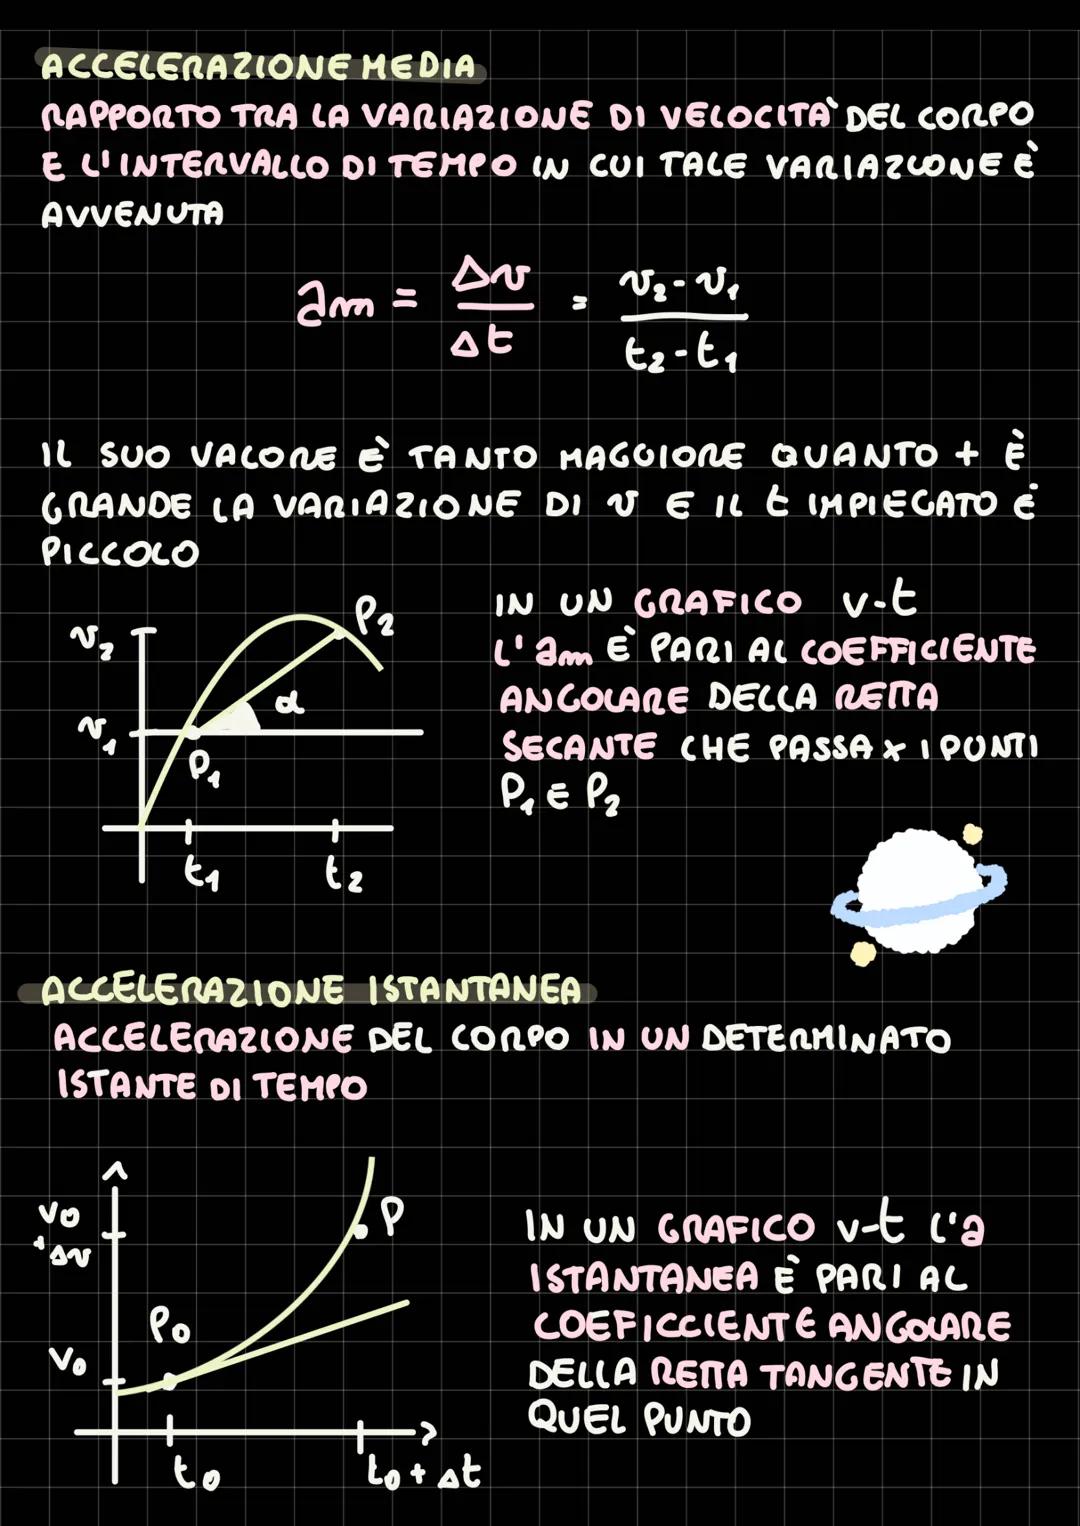 ACCELERAZIONE MEDIA
RAPPORTO TRA LA VARIAZIONE DI VELOCITÀ DEL CORPO
E L'INTERVALLO DI TEMPO IN CUI TALE VARIAZIONE È
AVVENUTA
am = Δv/Δt = v₂-v₁/t₂-t₁
IL SUO VALORE È TANTO MAGGIORE QUANTO + È
GRANDE LA VARIAZIONE DI v E IL t IMPIEGATO È
PICCOLO
v₂
P₂
v₁
α
P₁
t₁
t₂
IN UN GRAFICO v-t
L'am È PARI AL COEFFICIENTE
ANGOLARE DELLA RETTA
SECANTE CHE PASSA x I PUNTI
P₁ E P₂
ACCELERAZIONE ISTANTANEA
ACCELERAZIONE DEL CORPO IN UN DETERMINATO
ISTANTE DI TEMPO
v₀
+Δv
P
P₀
v₀
t₀
t₀+Δt
IN UN GRAFICO v-t L'a
ISTANTANEA È PARI AL
COEFICCIENTE ANGOLARE
DELLA RETTA TANGENTE IN
QUEL PUNTO